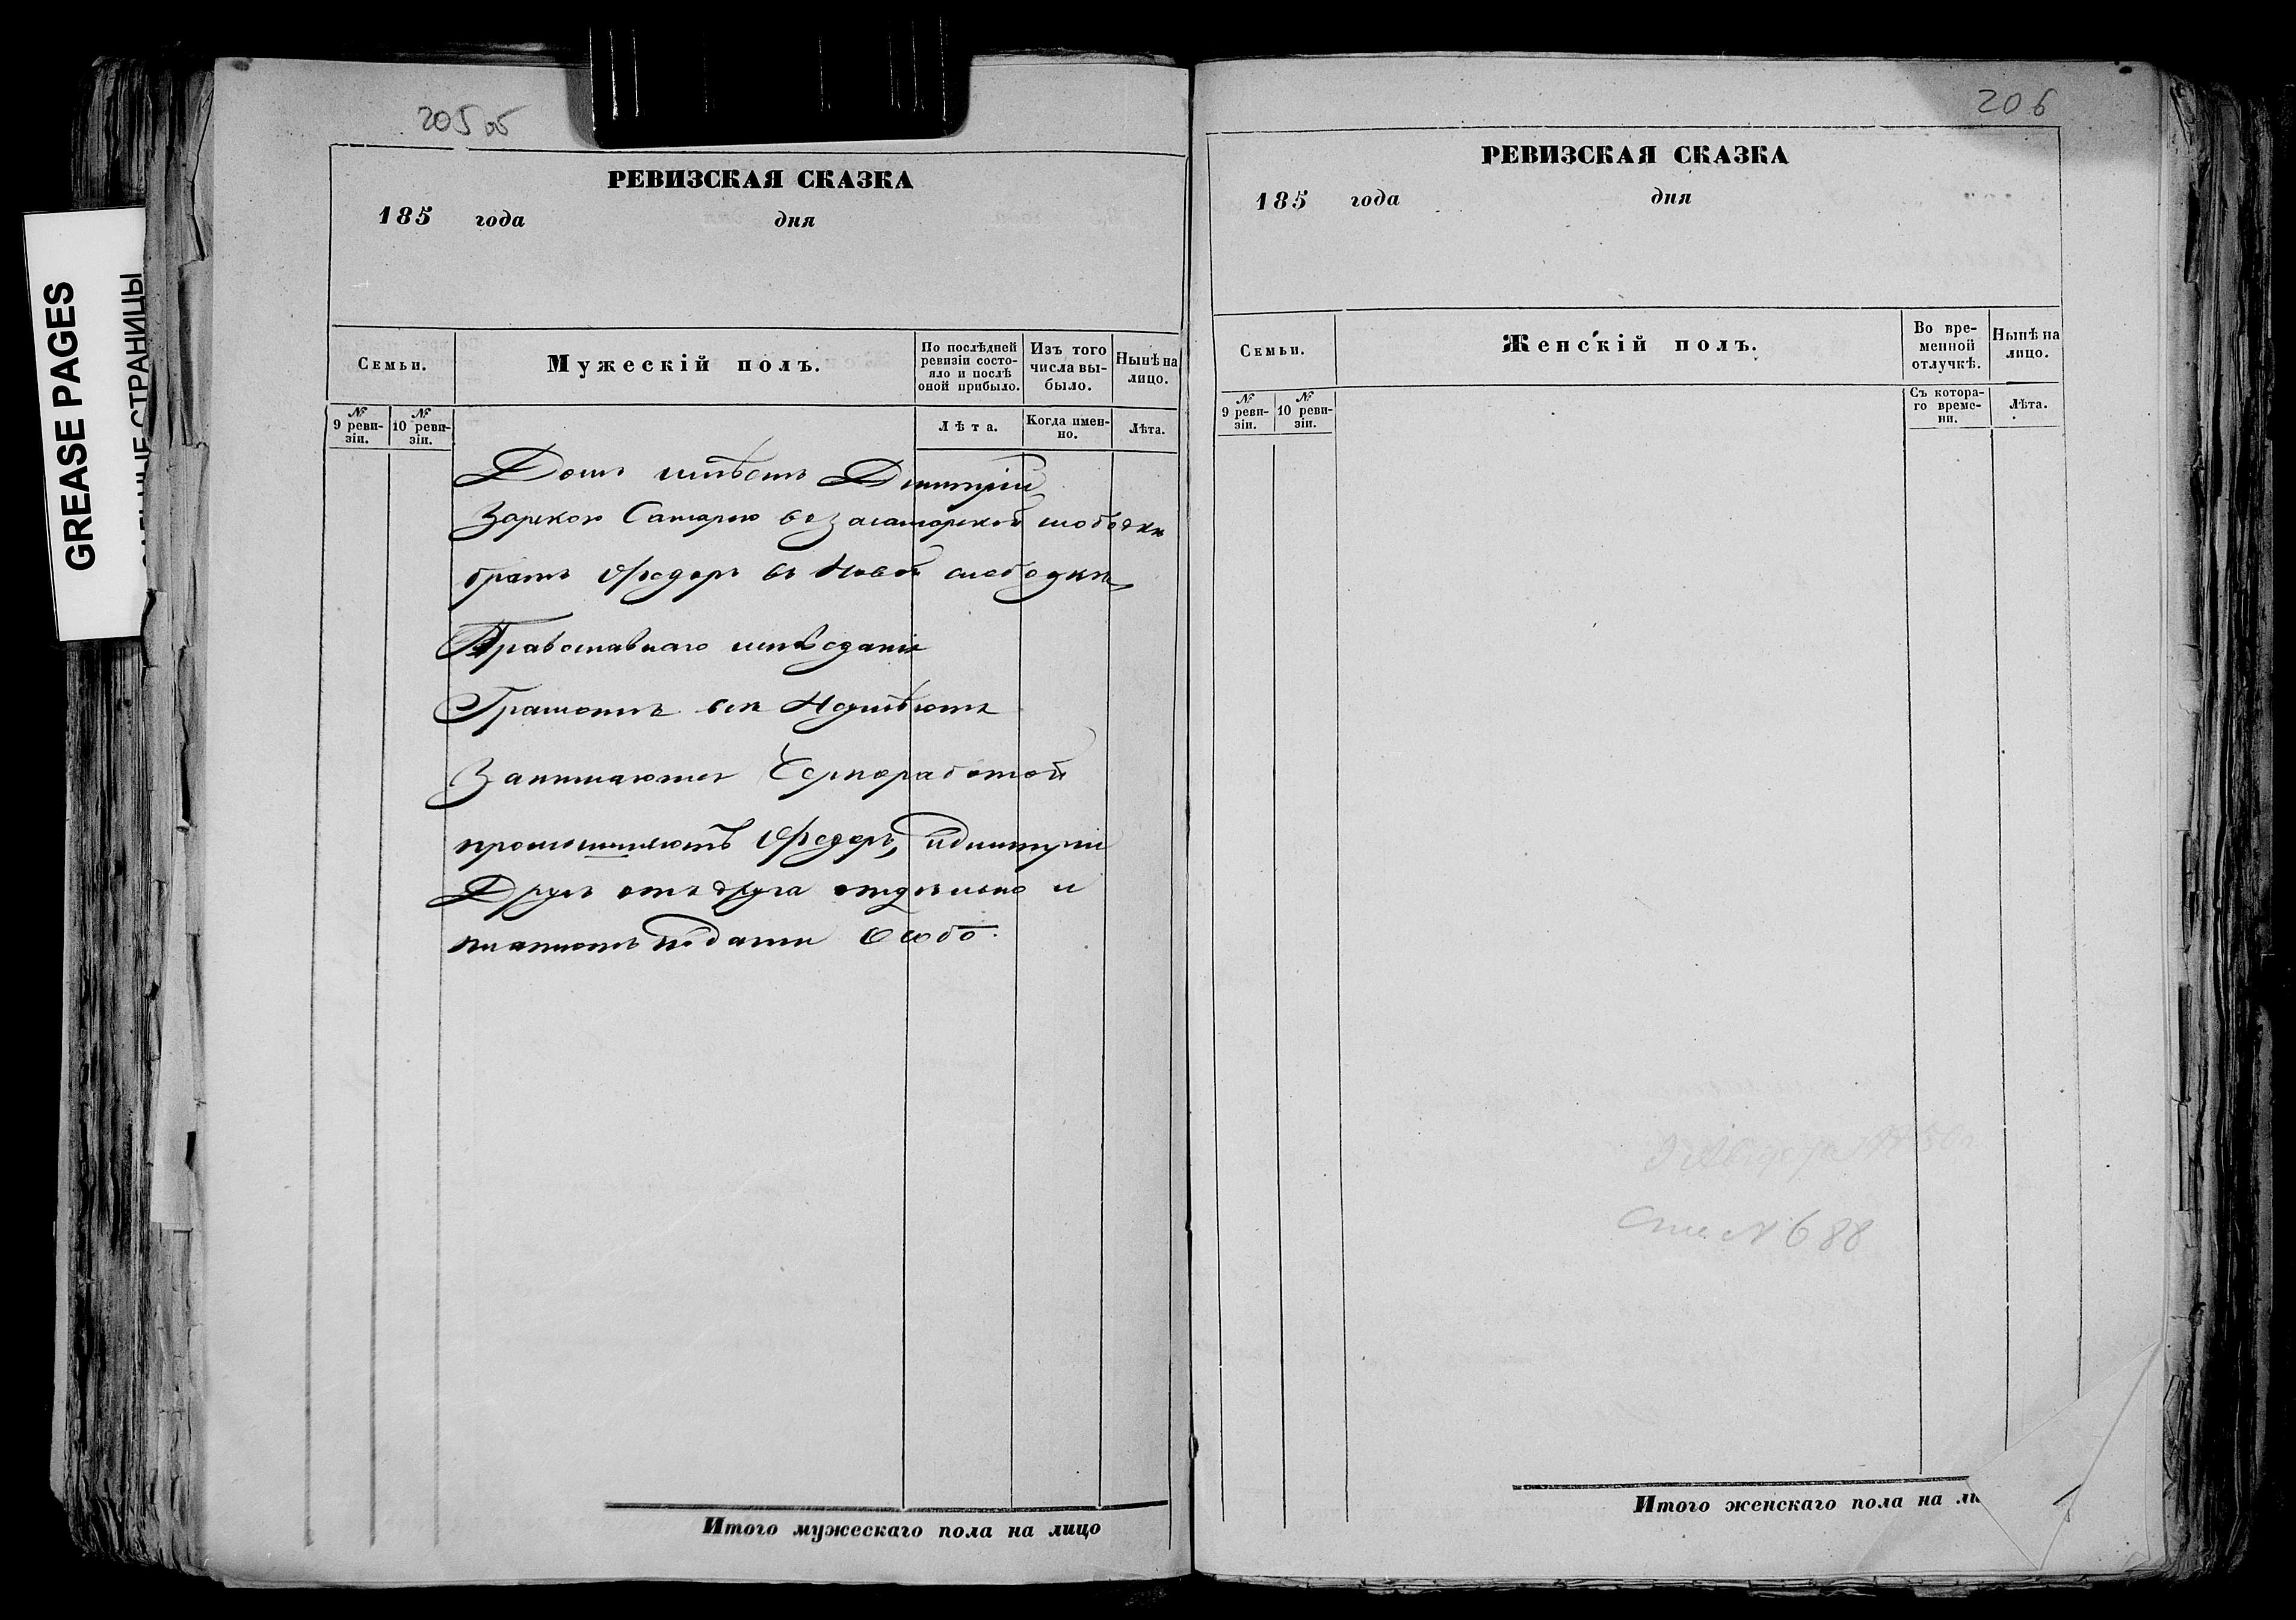 GREASE PAGES
205 об
РЕВИЗСКАЯ СКАЗКА
185 года дня
Семьи.
Мужескій полъ.
По послѣдней ревизіи состояло и послѣ оной прибыло.
Изъ того числа выбыло.
Нынѣ на лицо.
№ 9 ревизіи.
№ 10 ревизіи.
Лѣта.
Когда именно.
Лѣта.
Домъ имѣетъ Дмитрій
За рекою Самарою в слободки
братъ Федоръ в Новой слободки
Православнаго исповеданія
Грамотъ вси Неумѣютъ
Занимаются Черноработой
промышляютъ Федоръ, и Димитрій
Другъ отъ друга отдельно и
платютъ подати Особо.
Итого мужескаго пола на лицо
206
РЕВИЗСКАЯ СКАЗКА
185 года дня
Семьи.
Женскій полъ.
Во временной отлучкѣ.
Нынѣ на лицо.
№ 9 ревизіи.
№ 10 ревизіи.
Съ котораго времени.
Лѣта.
N 688
Итого женскаго пола на